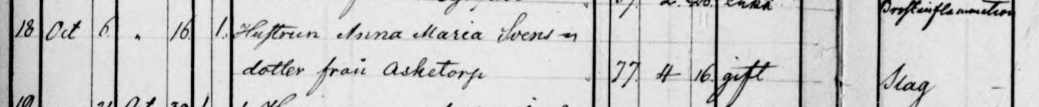 enka
Bröstinflammation
18 Oct 6 " 16 1. Hustrun Anna Maria Svens-
dotter från Asketorp 77 4 16 gift Slag
19